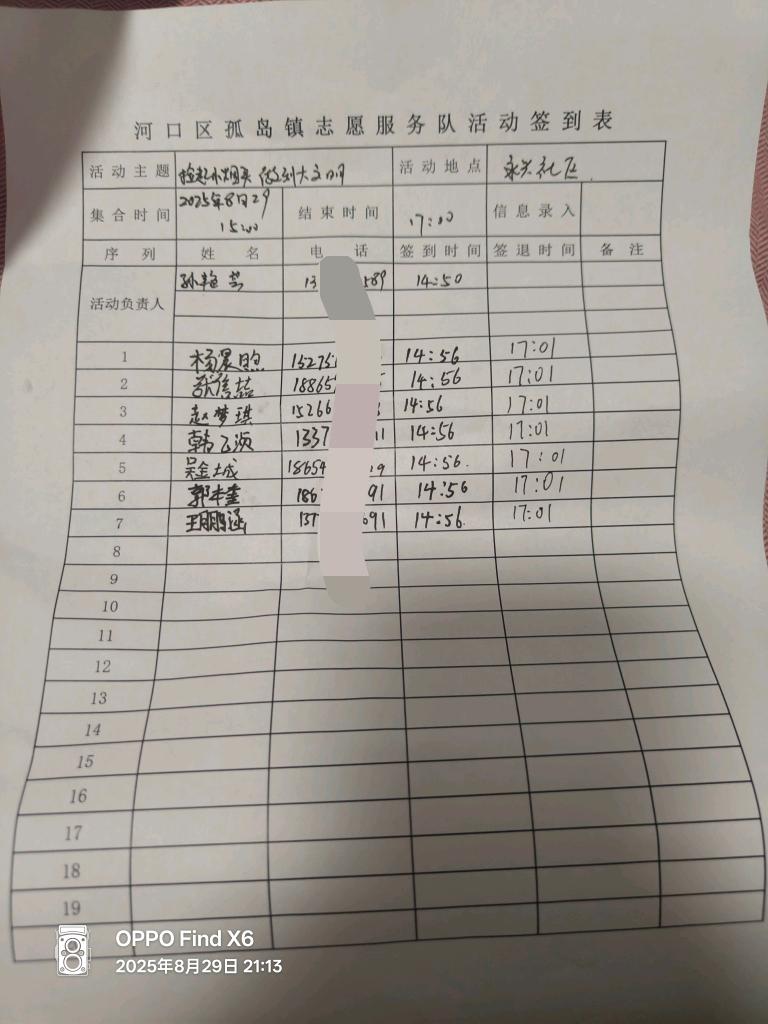 河口区孤岛镇志愿服务队活动签到表
活动主题 捡起小烟头 做到大文明 活动地点 永兴社区
集合时间 2025年8月29 15:00 结束时间 17:00 信息录入
序列 姓名 电话 签到时间 签退时间 备注
活动负责人 孙艳芸 13 589 14:50
1 杨晨煦 15275 14:56 17:01
2 张信喆 18865 14:56 17:01
3 赵梦琪 15266 14:56 17:01
4 韩乙灏 1337 11 14:56 17:01
5 吴金城 18654 9 14:56. 17:01
6 郭本奎 186 91 14:56 17:01
7 王鹏涵 137 091 14:56. 17:01
8
9
10
11
12
13
14
15
16
17
18
19
OPPO Find X6
2025年8月29日 21:13